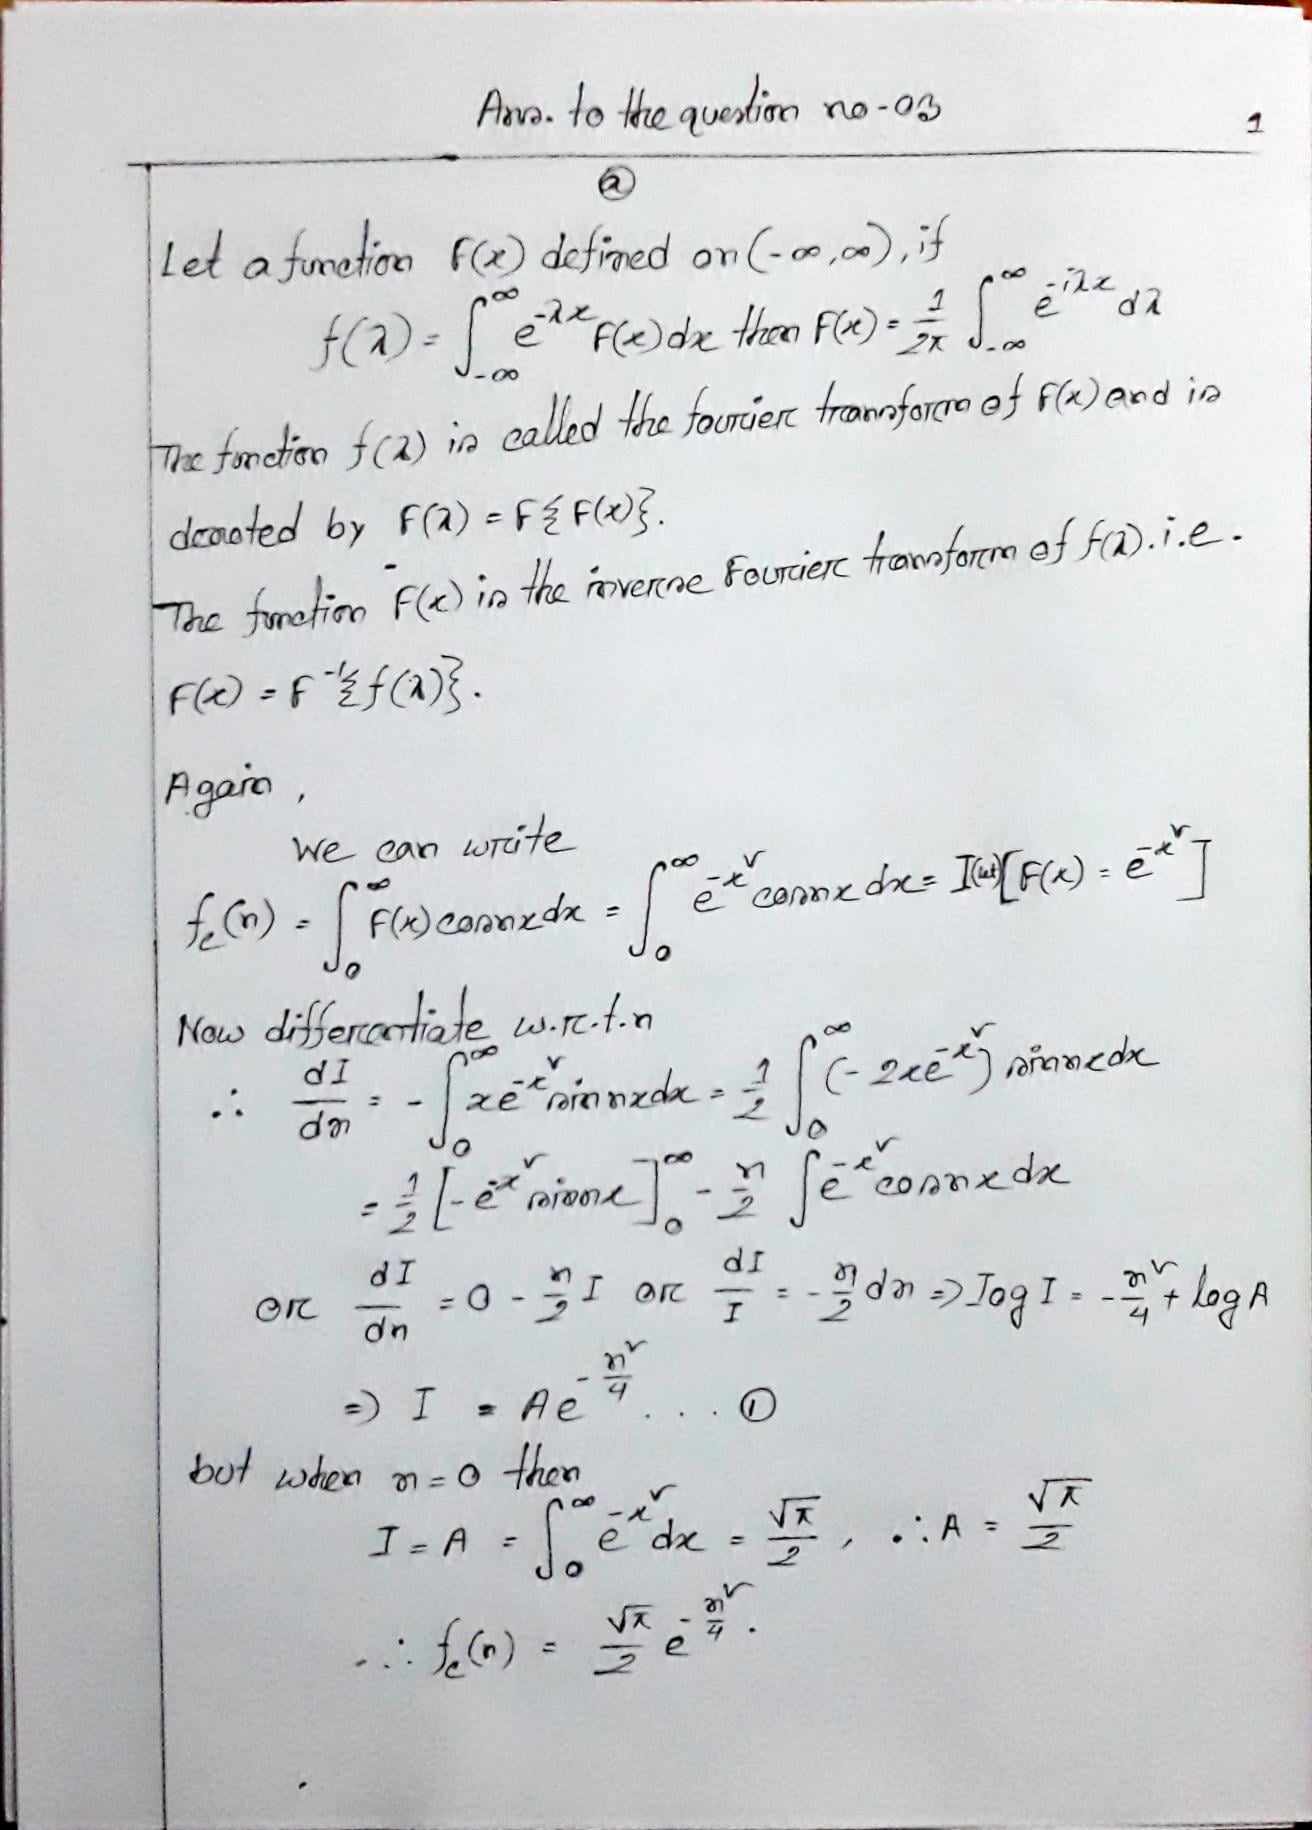 Ans. to the question no-03
1
ⓐ
Let a function F(x) defined on (-∞,∞), if
f(λ) = ∫_{-∞}^{∞} e^{-λx} F(x) dx then F(x) = 1/2π ∫_{-∞}^{∞} e^{-iλx} dλ
The function f(λ) is called the fourier transform of F(x) and is
denoted by F(λ) = F{F(x)}.
The function F(x) is the inverse Fourier transform of f(λ). i.e.
F(x) = F^{-1}{f(λ)}.
Again,
We can write
f_c(n) = ∫_0^∞ F(x) cosnx dx = ∫_0^∞ e^{-x^2} cosnx dx = I(let) [F(x) = e^{-x^2}]
Now differentiate w.r.t.n
∴ dI/dn = -∫_0^∞ xe^{-x^2} sin nx dx = 1/2 ∫_0^∞ (-2xe^{-x^2}) sinnx dx
= 1/2 [-e^{-x^2} sinnx]_0^∞ - n/2 ∫e^{-x^2} cosnx dx
or dI/dn = 0 - n/2 I or dI/I = -n/2 dn ⇒ log I = -n^2/4 + log A
⇒ I = Ae^{-n^2/4} ... ①
but when n=0 then
I = A = ∫_0^∞ e^{-x^2} dx = √π/2, ∴ A = √π/2
∴ f_c(n) = √π/2 e^{-n^2/4}.